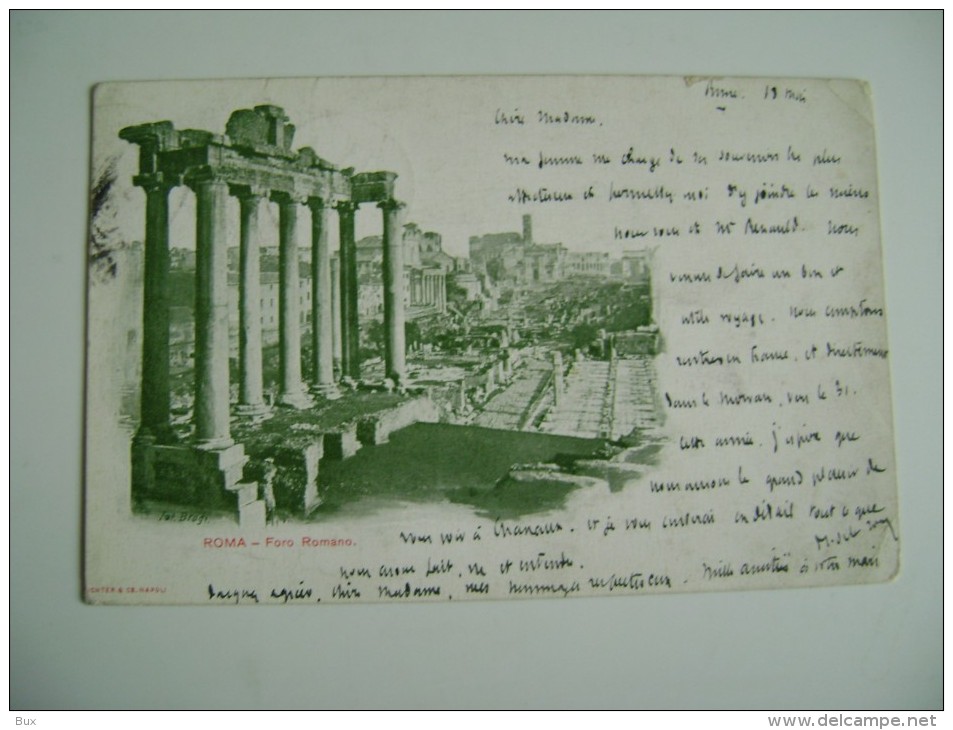 Rome. 18 mai
Chère Madame,
ma femme me charge de ses souvenirs les plus
affectueux et permettez moi d'y joindre les miens
pour vous et Mr Renauld. Nous
venons de faire un bon et
utile voyage. Nous comptons
rentrer en France, et directement
dans le Morvan, vers le 31.
cette année. J'espère que
nous aurons le grand plaisir de
vous voir à et je vous conterai en détail tout ce que
nous avons fait, vu et entendu.
Daignez agréer, chère Madame, mes hommages respectueux. Mille amitiés à votre mari
Fot. Brogi
ROMA – Foro Romano.
& CO. NAPOLI
Bux
http://www.delcampe.net